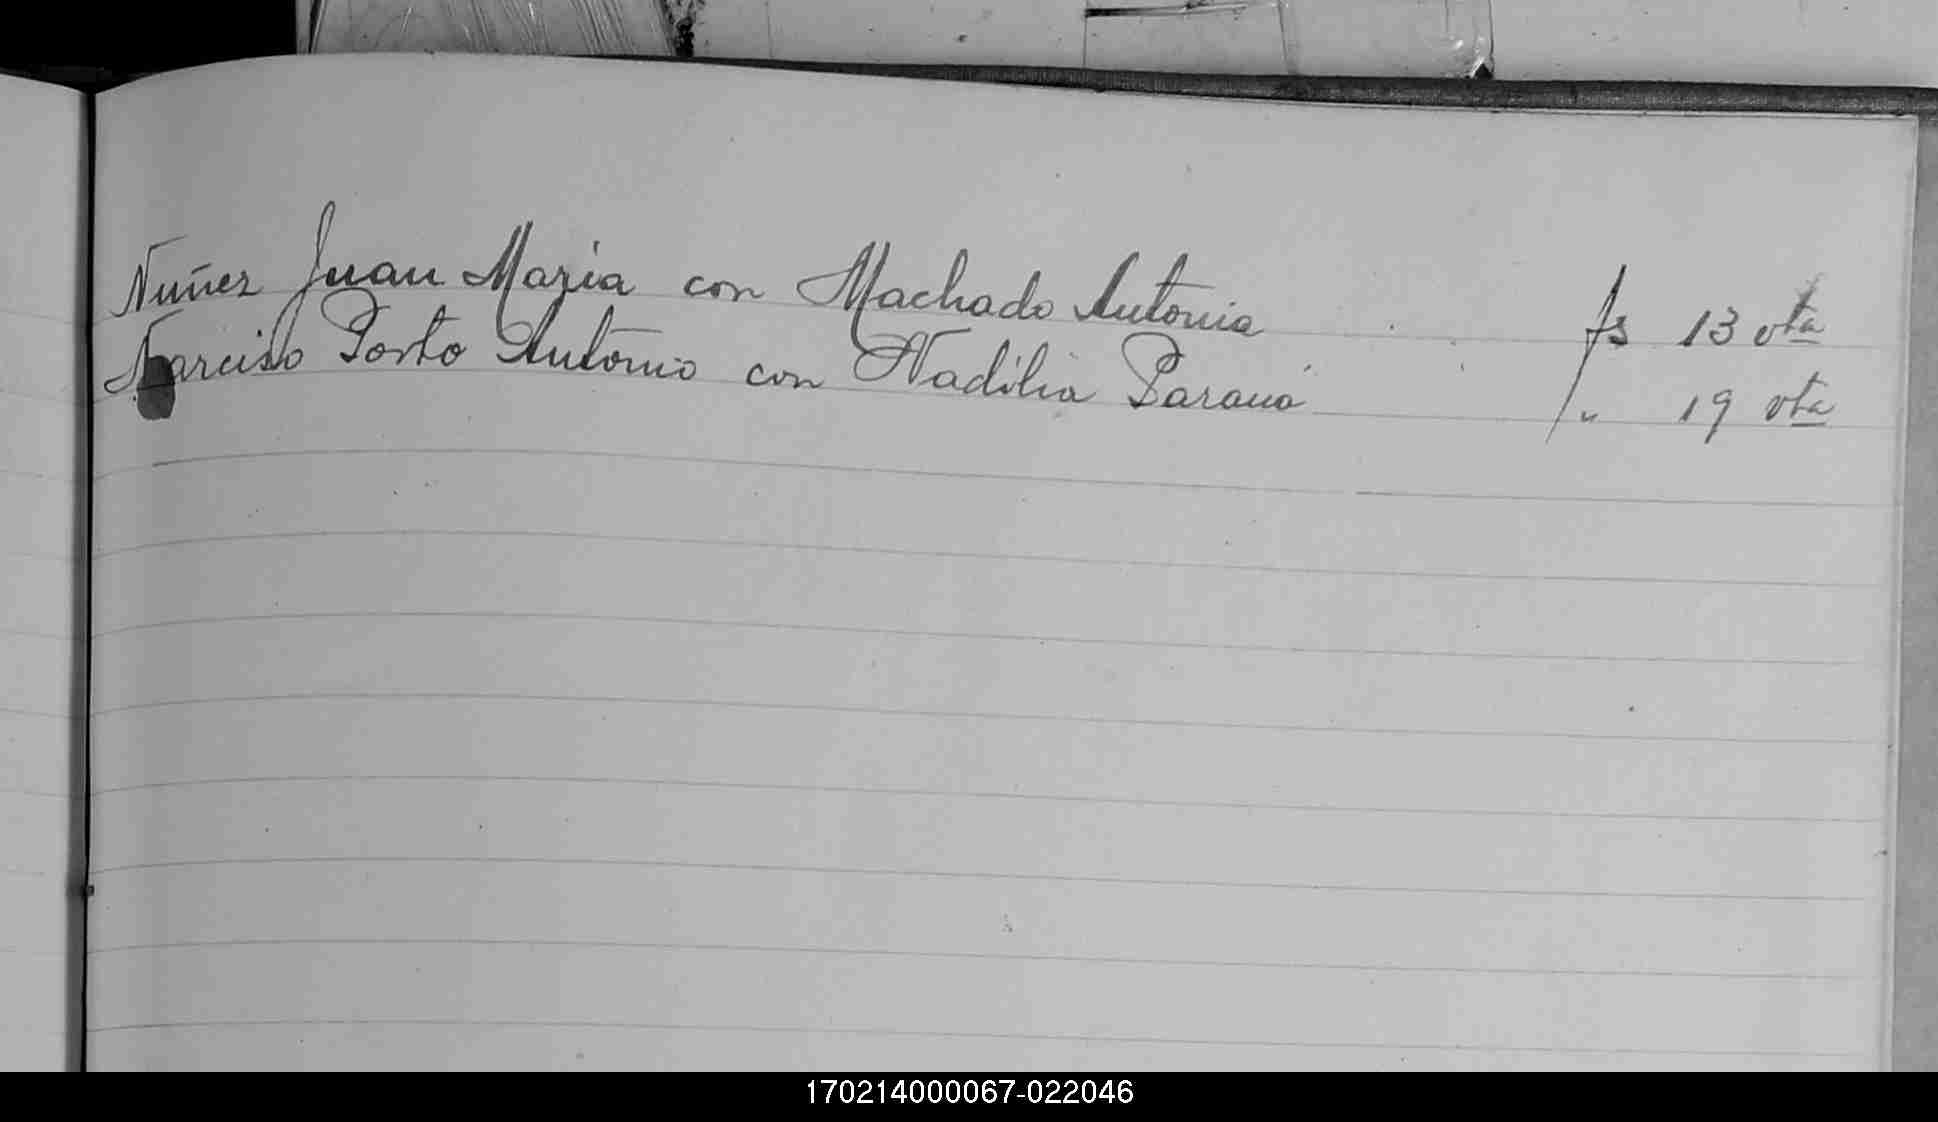 Nuñez Juan Maria con Machado Antonia fs 13 vta
Narciso Porto Antonio con Nadilia Paraná " 19 vta
170214000067-022046